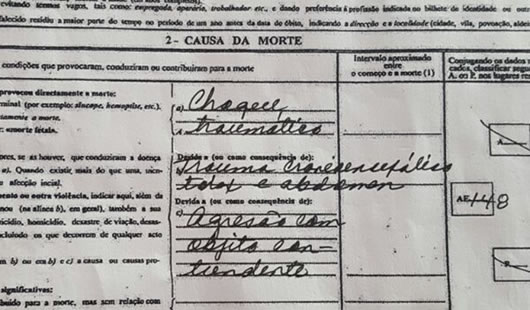 evitando termos vagos, tais como: empregada, operário, trabalhador etc., e dando preferência à profissão indicada no bilhete de identidade ou
estabelecido residiu a maior parte do tempo no período de um ano antes da data do óbito, indicando a direcção e a localidade (cidade, vila, povoação,
2 - CAUSA DA MORTE
condições que provocaram, conduziram ou contribuíram para a morte
Intervalo aproximado
entre
o começo e a morte (1)
Conjugando os dados
cadea, classificar
A. ou P. nos lugares
provocou directamente a morte:
minal (por exemplo: síncope, hemoptise, etc.).
tamente a morte.
e: «morte fetal».
a) Choque
traumatico
A
ores, se as houver, que conduziram a doença
a). Quando existir mais do que uma,
afecção inicial.
Devida a (ou como consequência de):
trauma craneoencefálico
torax e abdomen
mento ou outra violência, indicar aqui, além da
nou (na alínea b), em geral), também a sua
icídio, homicídio, desastre de viação,
cluindo os que decorrem de qualquer acto
Devida a (ou como consequência de):
Agresão com
objito con-
tundente
AE 148
em b) ou em b) e c) a causa ou causas
P
significativas:
ibuído para a morte, mas sem relação com